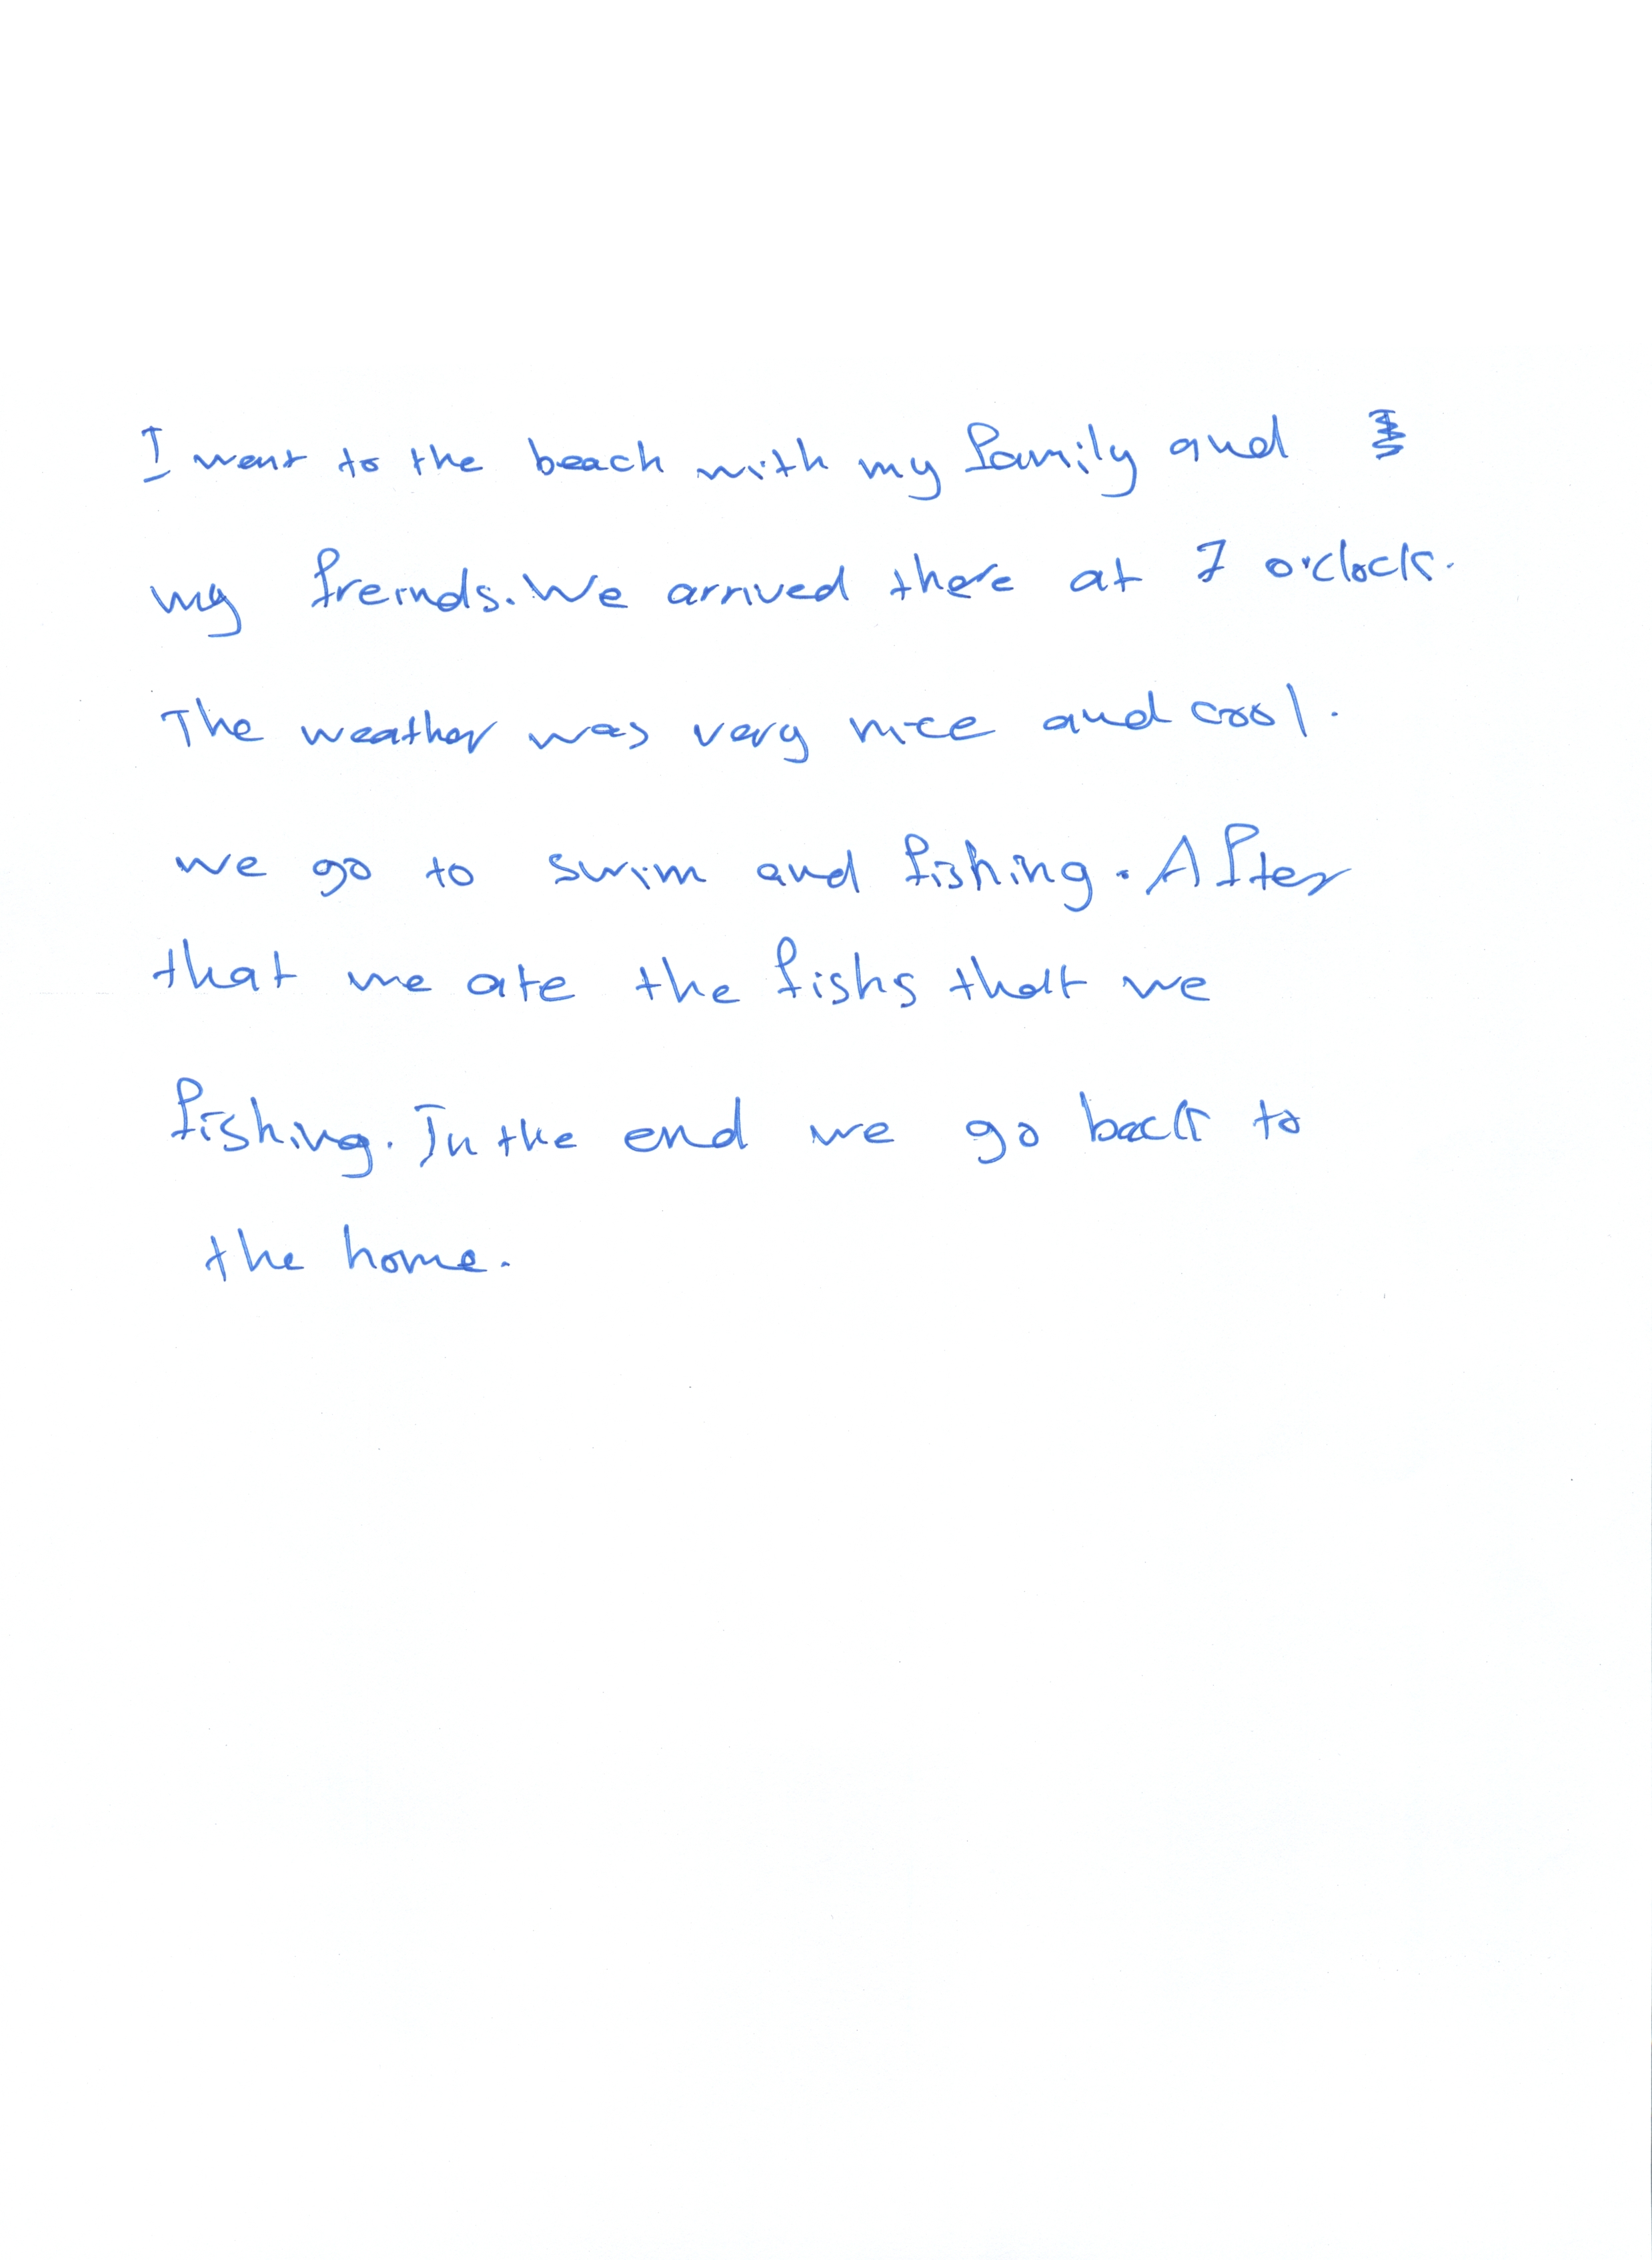 I went to the beach with my family and
my freinds. We arrived there at 7 o'clock.
The weather was very nice and cool.
we go to swim and fishing. After
that we ate the fishs that we
fishing. In the end we go back to
the home.